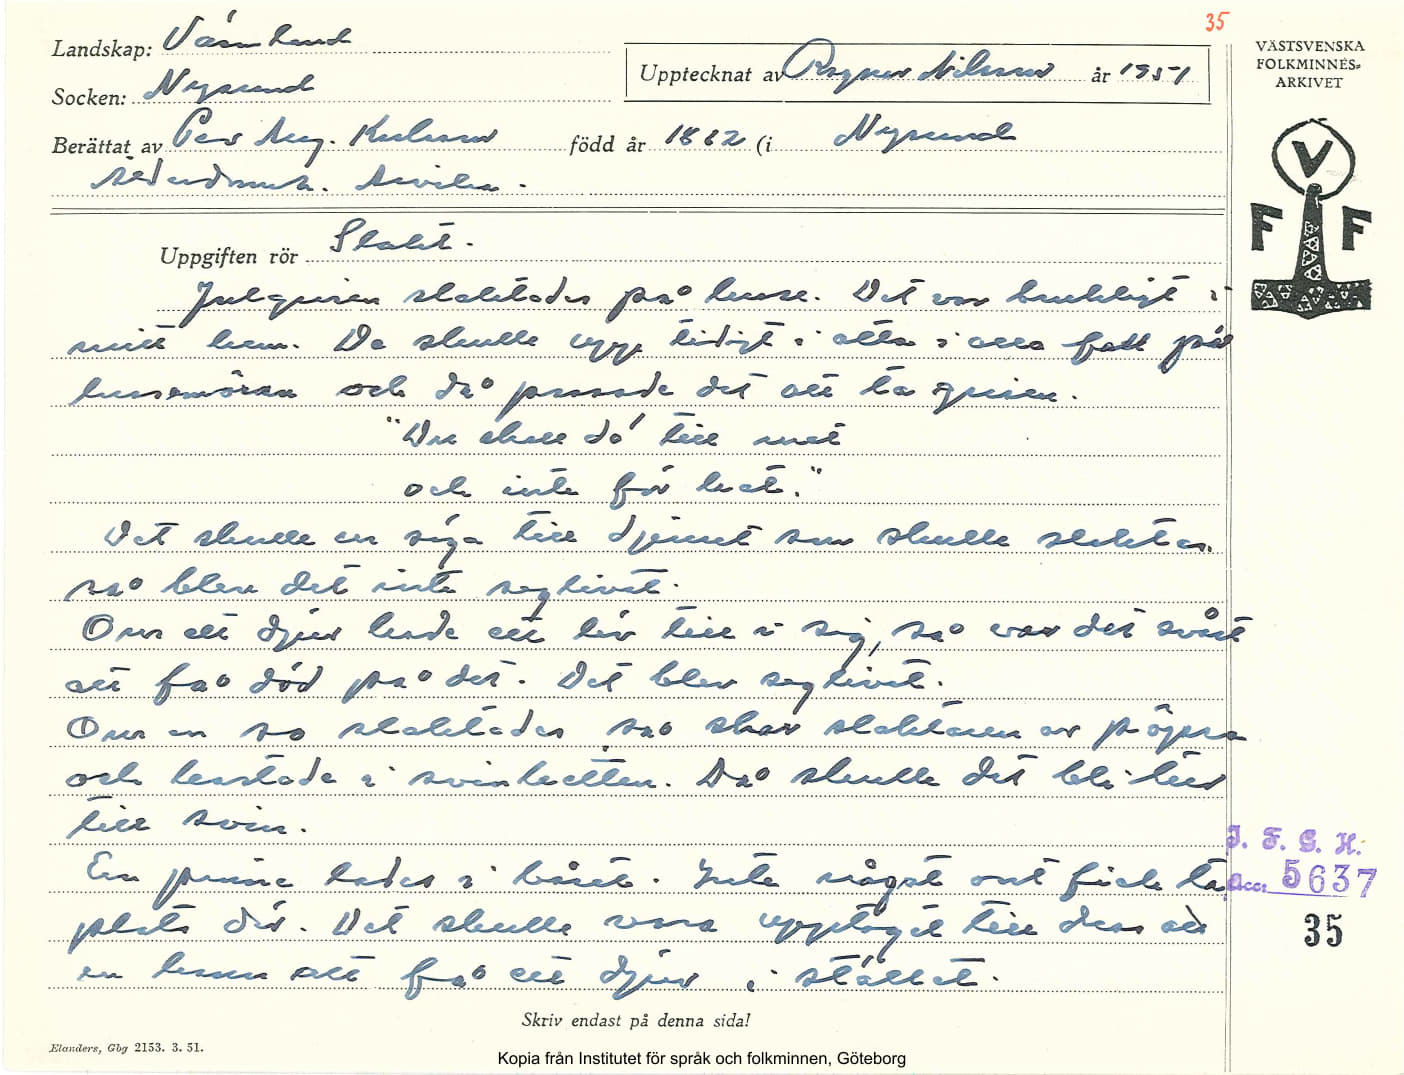 35
Landskap: Värmland
VÄSTSVENSKA
FOLKMINNES-
ARKIVET
Upptecknat av Ragnar Nilsson år 1951
Socken: Nysund
Berättat av Per Aug. Karlsson född år 1862 (i Nysund
V
F F
Uppgiften rör Slakt.
Julgrisen slaktades på lusse. Det var brukligt i
mitt hem. De skulle upp tidigt i otta i alla fall på
lussemoran och då passade det att ta grisen.
"Du skall dö till mat
och inte för hat."
Det skulle en säga till djuret som skulle slaktas,
så blev det inte seglivat.
Om ett djur hade ett liv till i sig, så var det svårt
att få död på det. Det blev seglivat.
Om en so slaktades så skar slaktaren av
och kastade i svinhuset. Då skulle det bli tur
till svin.
En pinne lades i båset. Inte något ont fick ta
plats där. Det skulle vara upptaget till dess att
en hann att få ett djur i stället.
I. F. G. H.
Acc: 5637
35
Skriv endast på denna sida!
Elanders, Gbg 2153. 3. 51.
Kopia från Institutet för språk och folkminnen, Göteborg